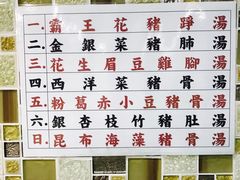 一.霸王花豬踭湯
二.金銀菜豬肺湯
三.花生眉豆雞腳湯
四.西洋菜豬骨湯
五.粉葛赤小豆豬骨湯
六.銀杏枝竹豬肚湯
日.昆布海藻豬骨湯